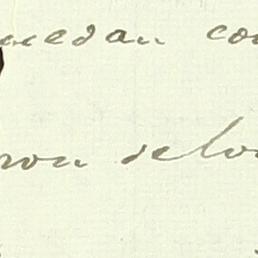 quedan co
ron solo